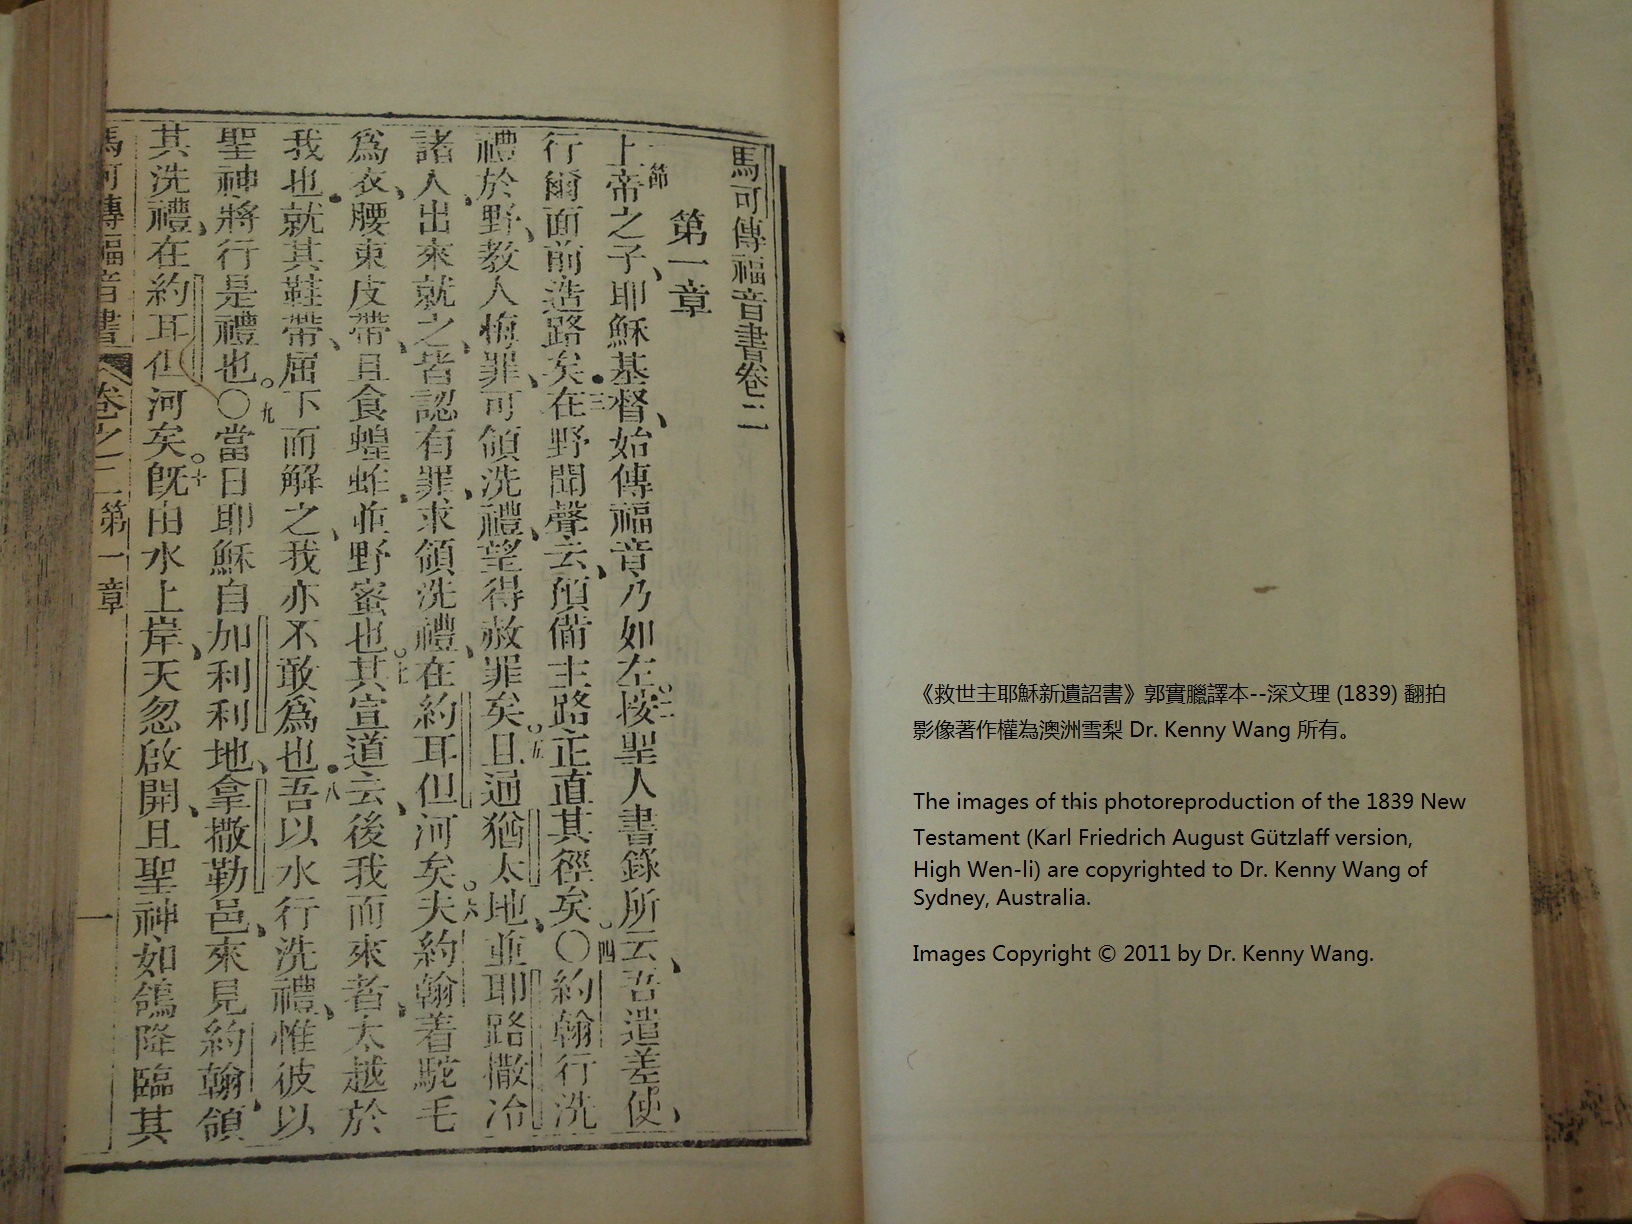 馬可傳福音書卷二
第一章
一節
上帝之子、耶穌基督、始傳福音乃如左。二按聖人書錄所云、吾遣差使、
行爾面前造路矣。三在野聞聲云、預備主路正直其徑矣。〇四約翰行洗
禮於野、教人悔罪、可領洗禮、望得赦罪矣。五且通猶太地、並耶路撒冷
諸人、出來就之者、認有罪、求領洗禮、在約耳但河矣。六夫約翰着駝毛
爲衣、腰束皮帶、且食蝗蚱並野蜜也。七其宣道云、後我而來者、太越於
我也、就其鞋帶、屈下而解之、我亦不敢爲也。八吾以水行洗禮、惟彼以
聖神將行是禮也。〇九當日耶穌自加利利地、拿撒勒邑、來見約翰、領
其洗禮、在約耳但河矣。十旣由水上岸、天忽啟開、且聖神如鴿降臨其
馬可傳福音書 卷之二 第一章 一
《救世主耶穌新遺詔書》郭實臘譯本--深文理 (1839) 翻拍
影像著作權為澳洲雪梨 Dr. Kenny Wang 所有。
The images of this photoreproduction of the 1839 New
Testament (Karl Friedrich August Gützlaff version,
High Wen-li) are copyrighted to Dr. Kenny Wang of
Sydney, Australia.
Images Copyright © 2011 by Dr. Kenny Wang.